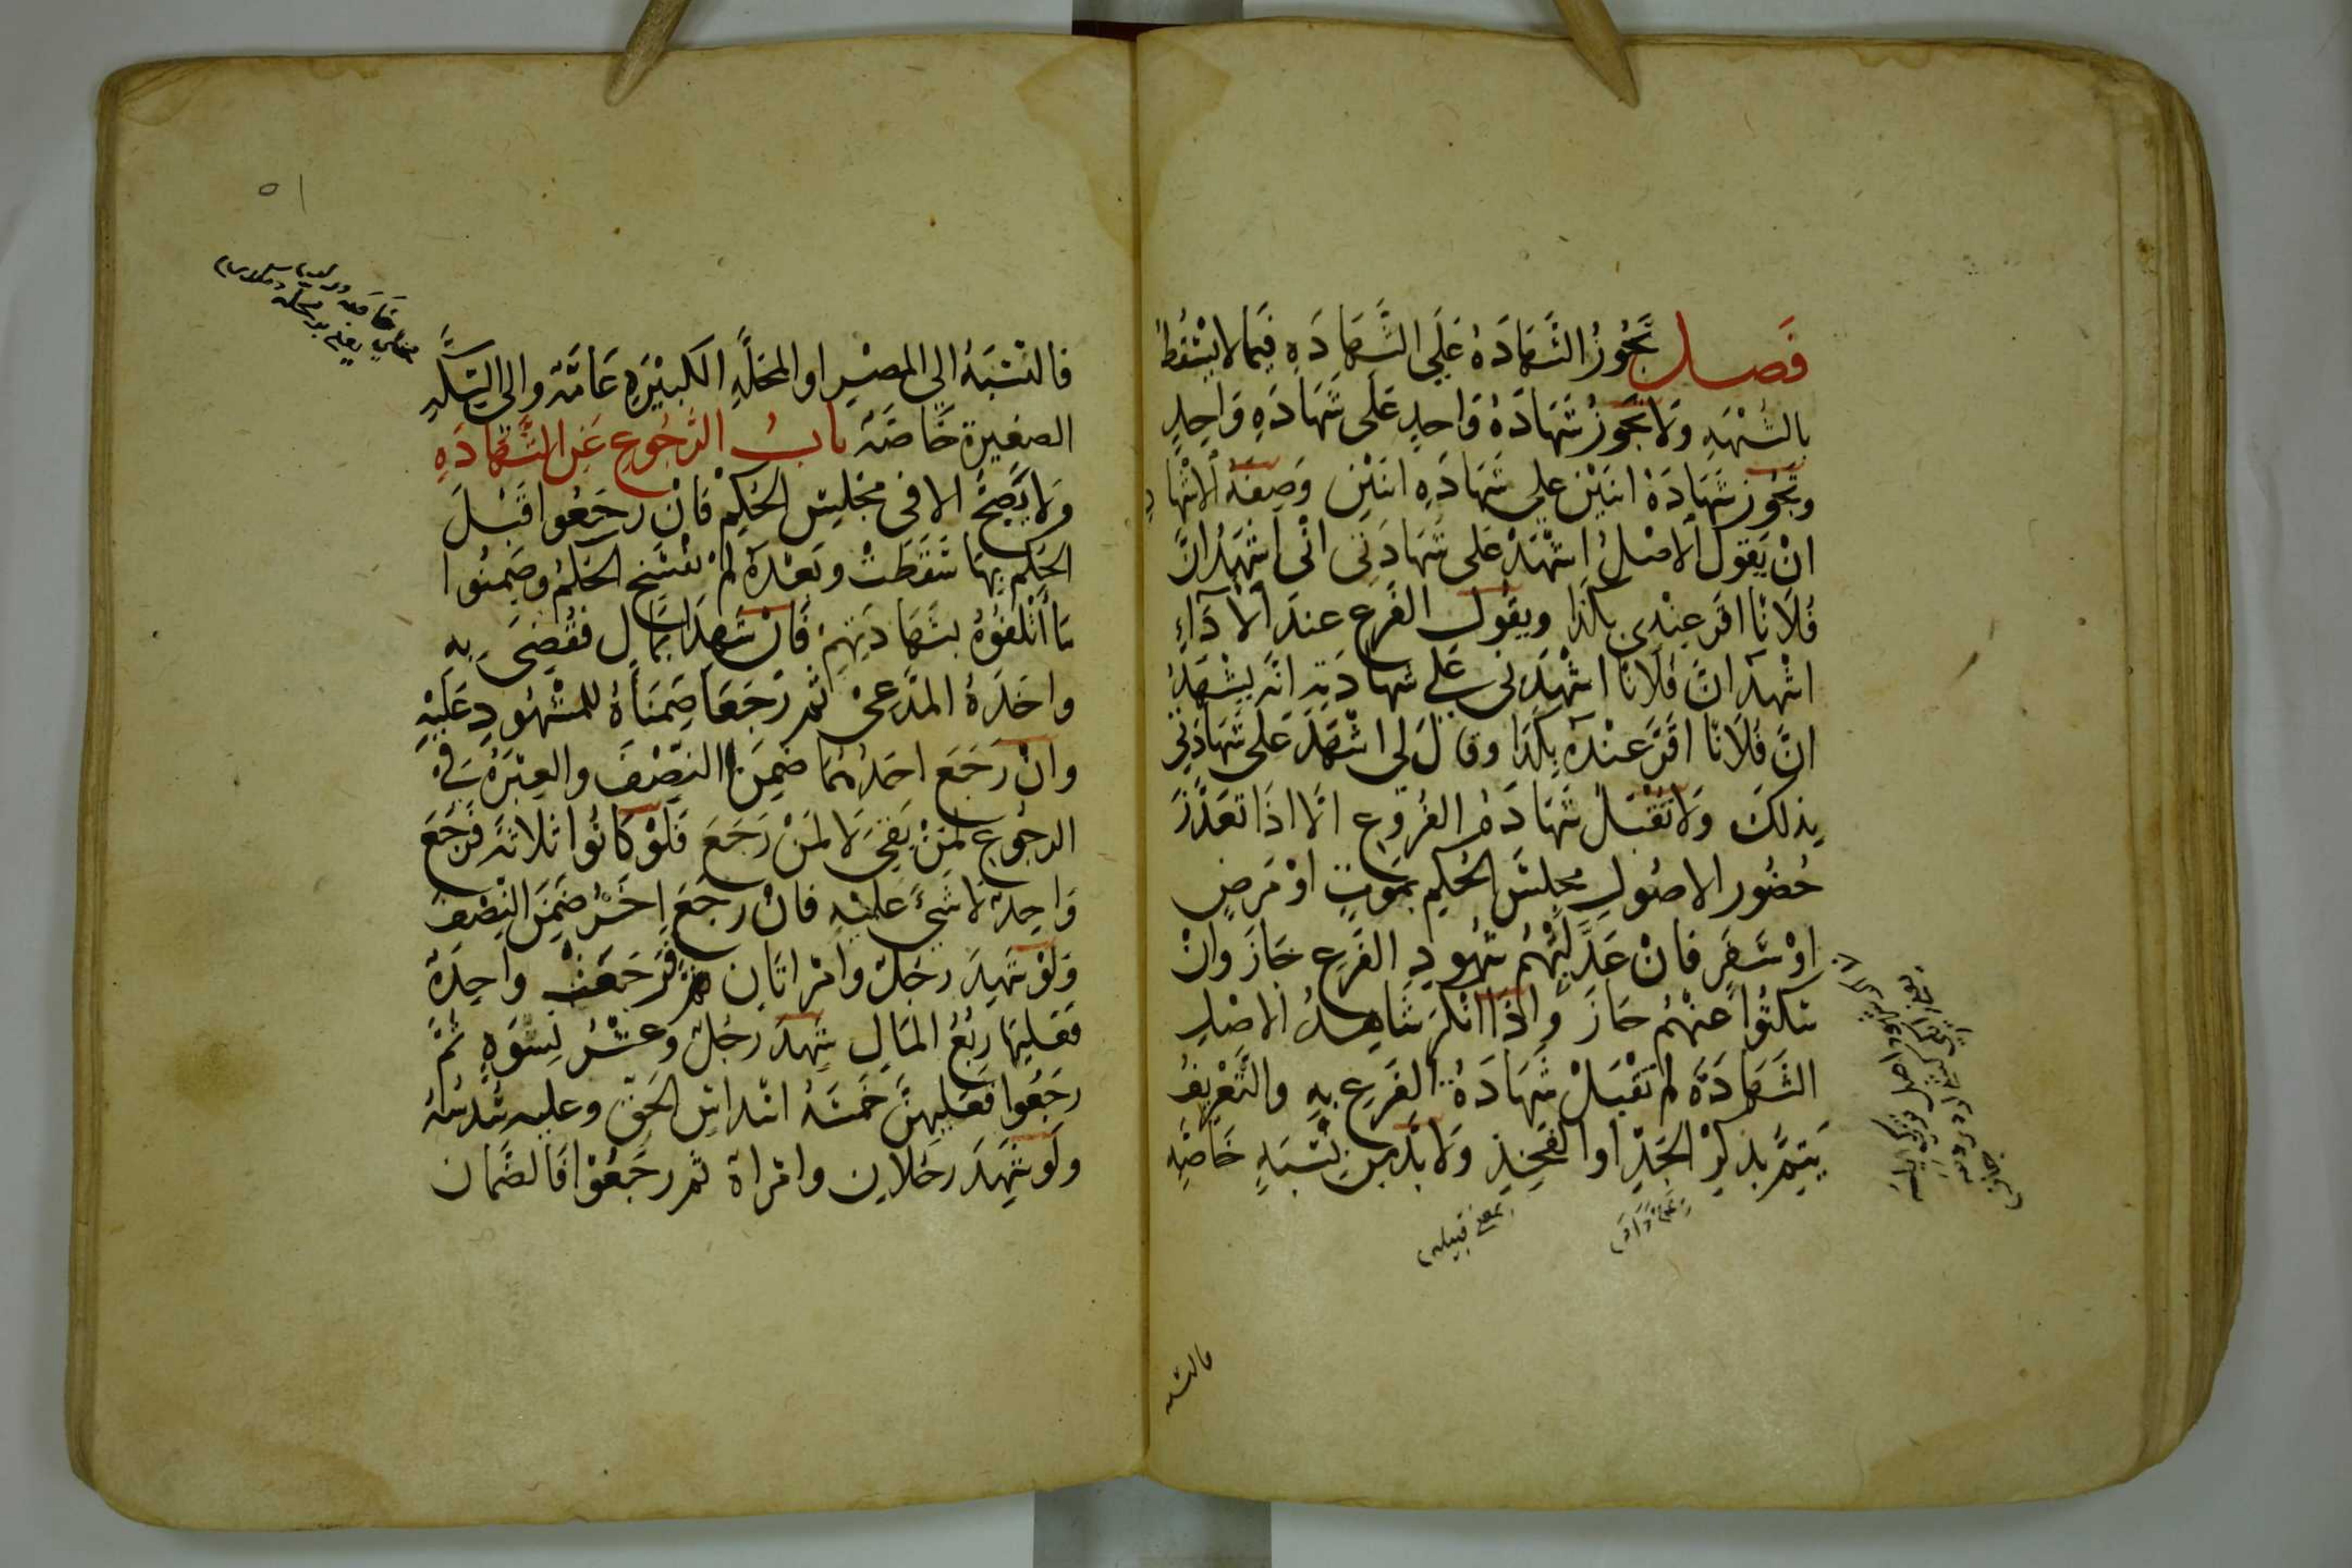 فصل تَجُوزُ الشَّهَادَةُ عَلَى الشَّهَادَةِ فِيمَا لا يَسْقُطُ
بالشُّبْهَةِ وَلا تَجُوزُ شَهَادَةُ وَاحدٍ عَلَى شَهَادَةِ وَاحِدٍ
وتَجُوز شَهَادَةُ اثنَيْن على شَهَادَةِ اثنَيْن وَصِفَةُ الْاشْهَادِ
انْ يَقولَ الاصْلُ اشْهَدْ عَلى شَهَادَتِى انّى اشْهَدُ انَّ
فُلَانًا اقَرّ عِنْدِى بكَذَا ويقُولُ الفَرع عندَ الْاَدَاءِ
اشْهدُ انَّ فُلَانًا اشْهَدَنى عَلى شهَادَتِهِ انّهُ يشْهَدُ
انَّ فُلَانًا اقَرَّ عنْدَهُ بِكَذَا وقالَ لى اشْهَدْ عَلى شَهَادَتِى
بِذلكَ وَلا تقْبَلُ شَهَادَةُ الفُرُوعِ الَّا اذَا تعَذّرَ
حُضُور الاصُولِ مجلسَ الحُكمِ بمَوتٍ اوْ مَرَضٍ
اوْ سَفَرٍ فَانْ عَدَّلَهُمْ شُهودِ الفَرعِ جَازَ وانْ
سَكتُوا عَنْهُمْ جَازَ وَاِذَا انْكَرَ شَاهِدُ الاصْلِ
الشَّهادَةَ لم تقْبَلْ شَهَادَةُ الفَرعِ بهِ والتَّعْرِيفُ
يَتِمُّ بذكرْ الجَدِّ اوالفَخِذِ وَلا بُدَّ من نِسْبَةٍ خَاصّةٍ
بمعنى قبيله
فالنسبه
فالنِسْبَةُ الى المِصْرِ او المحَلَّةِ الكَبيْرَةِ عَامَّة والى السِّكَّةِ
الصغيرة خَاصَّة بابُ الرُّجُوعِ عَنِ الشَّهَادَةِ
وَلا يَصِحّ الا فى مَجْلِسِ الحُكْمِ فَانْ رجَعُوا قَبْلَ
الحُكم بِهَا سَقَطَتْ وبَعْدَهُ لَمْ يفْسَخ الحُكْمُ وضَمِنُوا
مَا اَتْلَفُوْهُ بشَهَادَتِهِمْ فَانْ شَهِدَا بمَالٍ فقُضِىَ به
واخَذَهُ المدَّعِىْ ثُمَّ رَجَعَا ضَمِنَاهُ للمشْهُودِ عَلَيْهِ
وانْ رَجَعَ احَدُهُمَا ضَمِنَ النِصْفَ والعِبْرَةُ فِىْ
الرجُوعِ لمَنْ بَقِىَ لَا لمَنْ رَجَعَ فَلَوْ كَانُوا ثلاثَة فَرَجَعَ
وَاحِدٌ لَا شَىْءَ عَلَيْهِ فانْ رجَعَ اخَرُ ضَمِنَ النِصْفَ
وَلَوْ شَهِدَ رجُلٌ وامْرَاتَانِ فَرَجَعَتْ واحِدَةٌ
فعَلَيهَا رُبُعُ المَالِ شَهِدَ رجُلٌ وعَشْرُ نِسْوَةٍ ثُمَّ
رجَعُوا فعَلَيهنَّ خَمسَةُ اسْداسِ الحَقّ وعليه سُدْسُهُ
ولَوْ شَهِدَ رجُلَانِ وامْراة ثُم رجَعُوْا فَالضَّمان